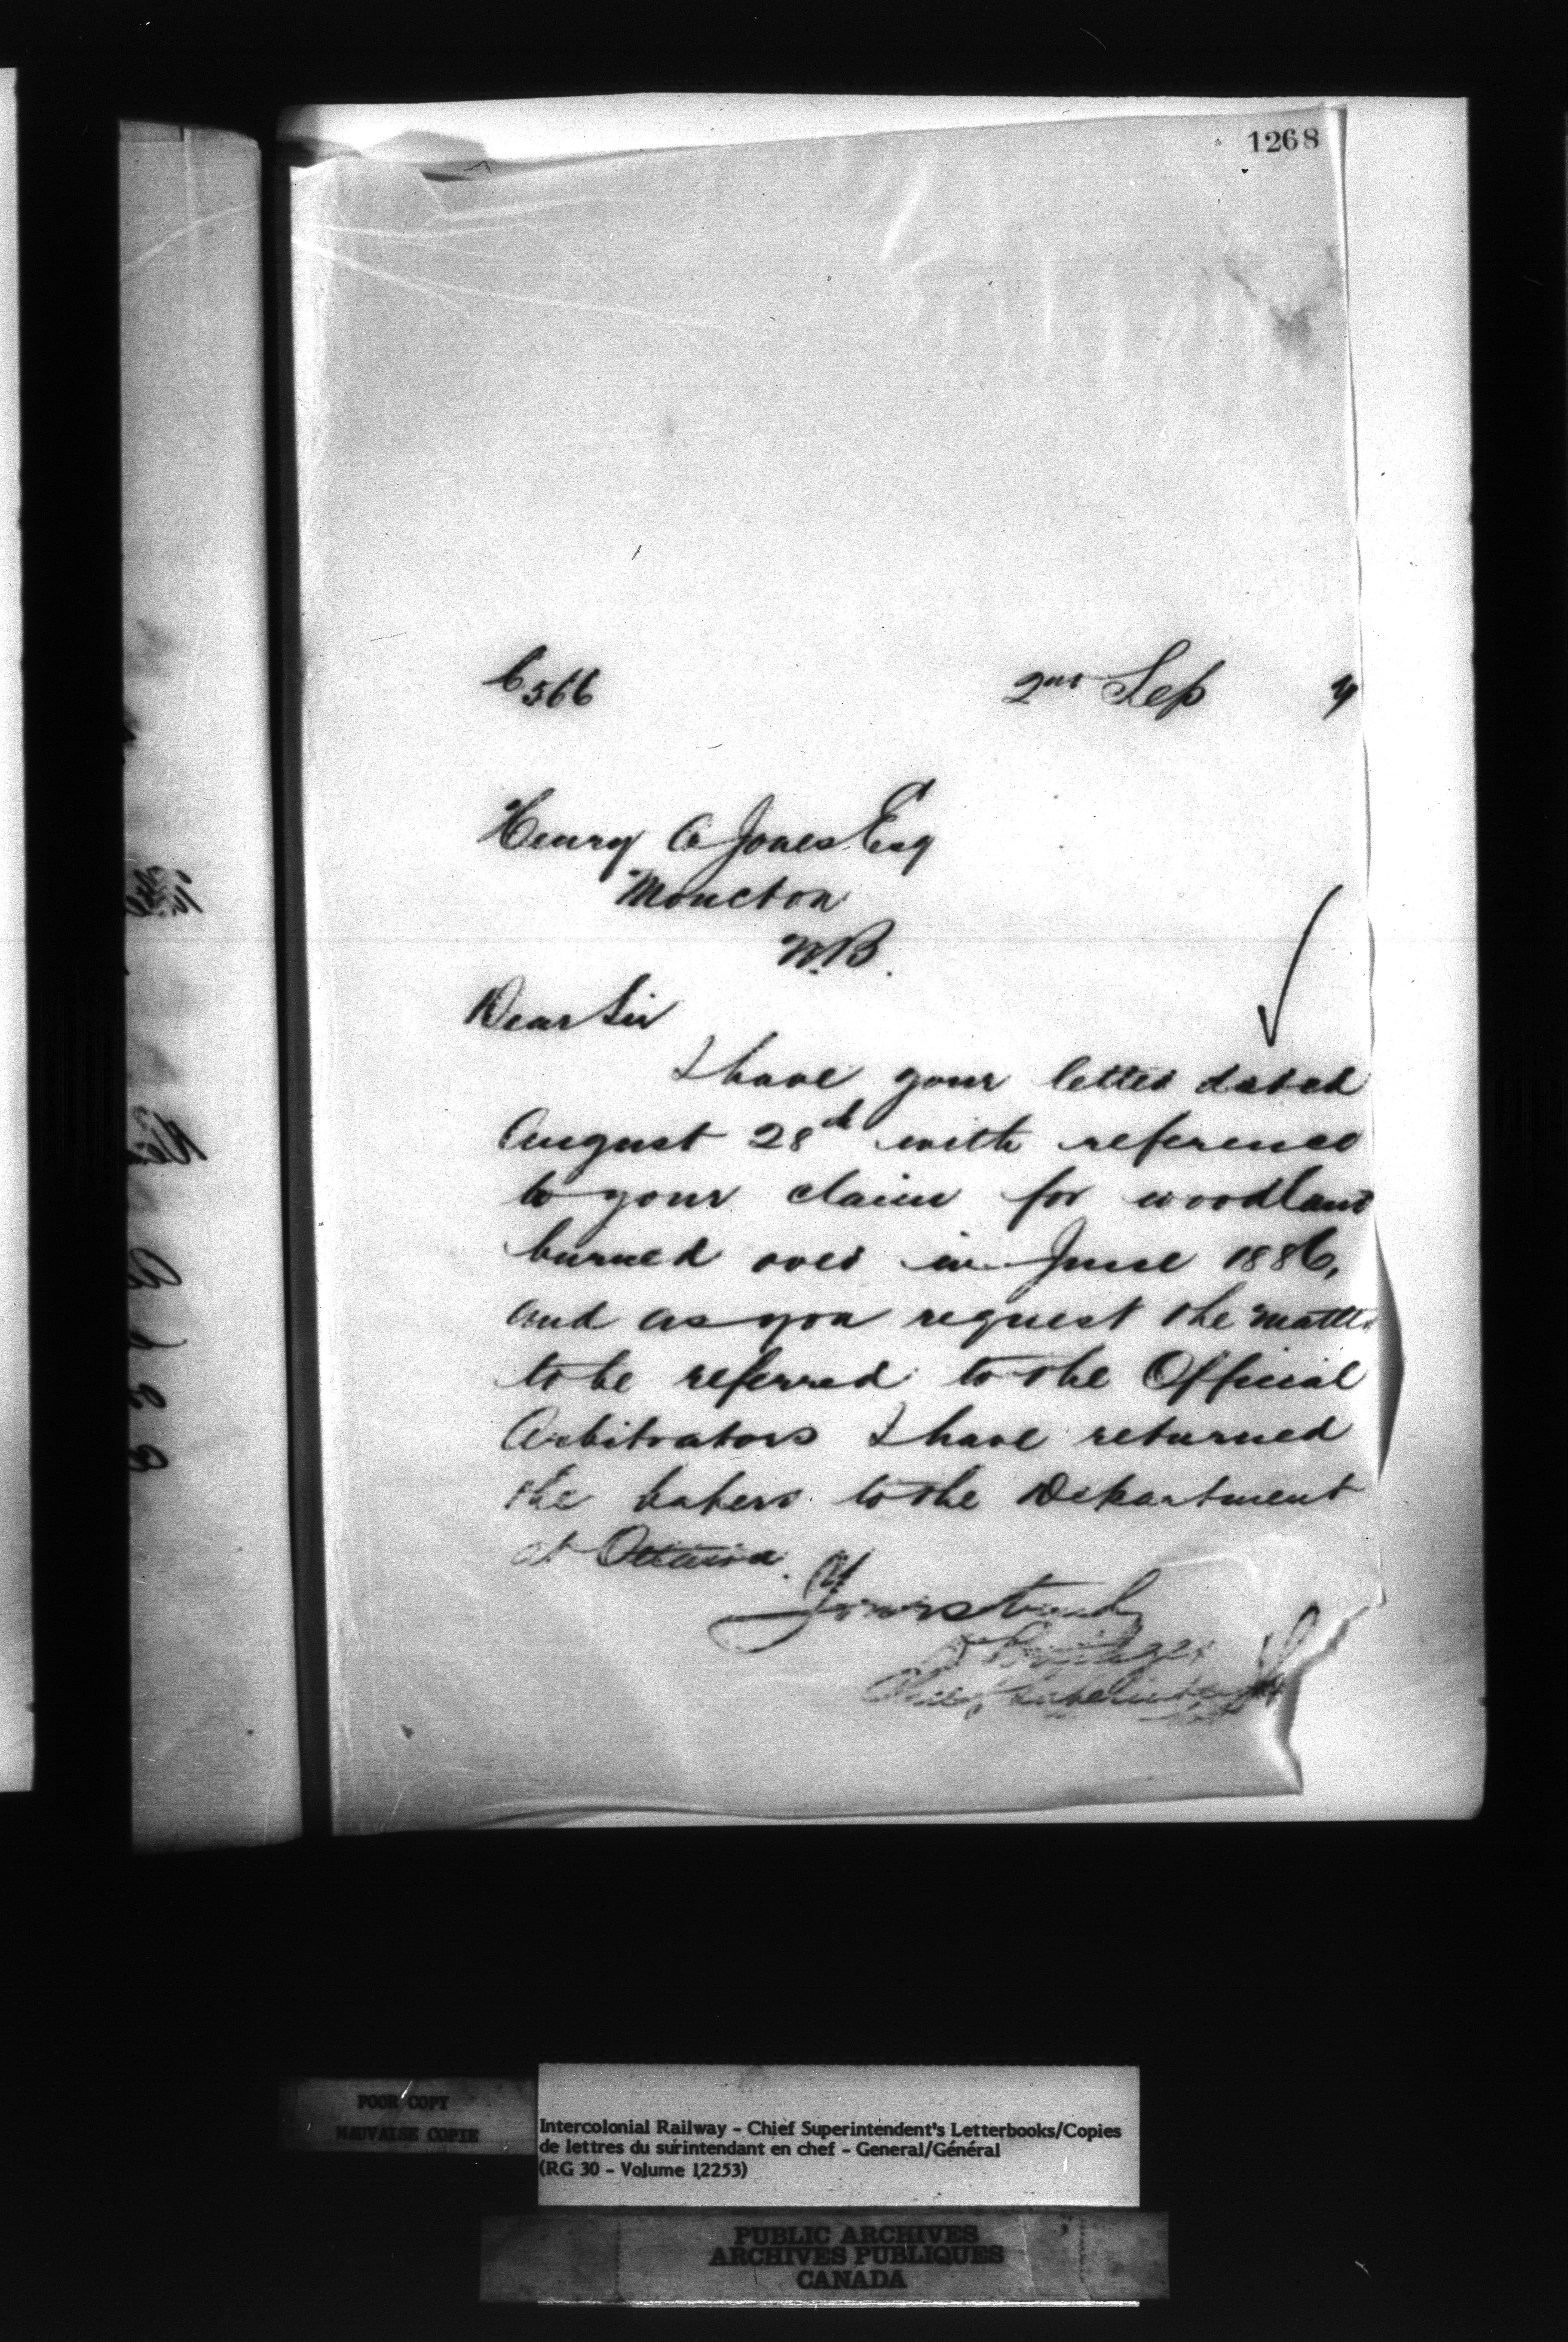 1268
C566 2nd Sep 7
Henry A Jones Esq
Moncton
N.B.
Dear Sir
I have your letter dated
August 28th with reference
to your claim for woodland
burned over in June 1886,
and as you request the matter
to be referred to the Official
Arbitrators I have returned
the papers to the Department
at Ottawa.
Yours truly
D Pottinger
Chief Superintendent
POOR COPY
MAUVAISE COPIE
Intercolonial Railway - Chief Superintendent's Letterbooks/Copies
de lettres du surintendant en chef - General/Général
(RG 30 - Volume 12253)
PUBLIC ARCHIVES
ARCHIVES PUBLIQUES
CANADA